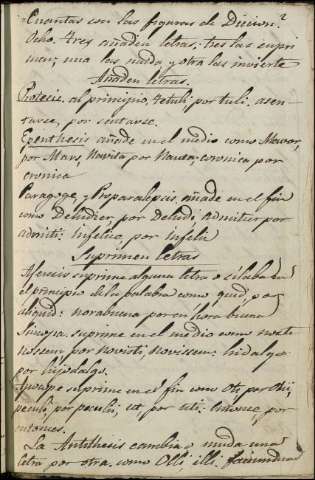 Cuantas son las figuras de Diccion?
Ocho, tres añaden letras: tres las supri
men; una las muda y otra las invierte
Añaden letras.
Protecis, al principio, tetuli; por tuli. asen-
tarse, por sentarse.
Epenthesis añade en el medio como Mavors,
por Mars, Navita por Nauta; coronica por
cronica
Paragoge, y Proparalepsis, añade en el fin
como deludier, por deludi admitier por
admiti: infelice por infeliz
Suprimen letras
Aferecis suprime alguna letra o silaba en
el principio de la palabra como quid, por
aliquid: norabuena por en hora buena
Sincopa. suprime en el medio como
por novisti novissem: hidalgo
por hijodalgo.
suprime en el fin como Oti, por Otii,
peculi, por peculii, por uti: entonce, por
entonces.
La Antithesis cambia o muda una
letra por otra. como Olli illi.